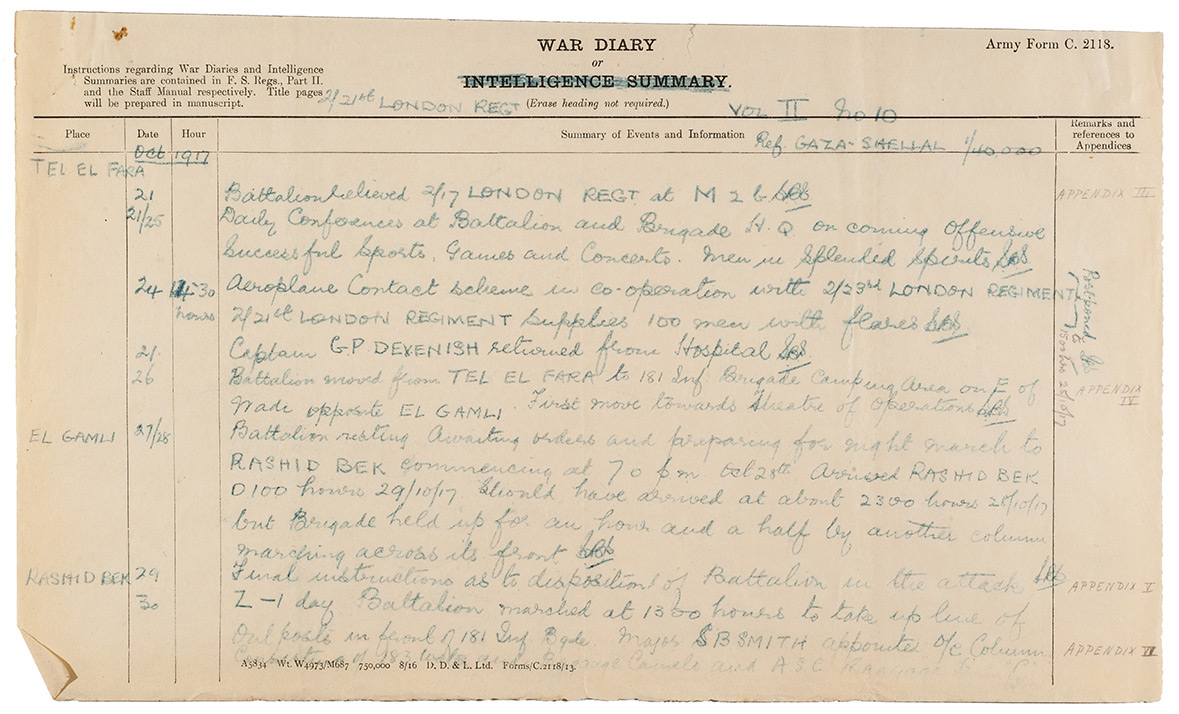 WAR DIARY
Army Form C. 2118.
or
INTELLIGENCE SUMMARY.
Instructions regarding War Diaries and Intelligence
Summaries are contained in F. S. Regs., Part II.
and the Staff Manual respectively. Title pages
will be prepared in manuscript.
2/21st LONDON REGT (Erase heading not required.) VOL II No 10
Place Date Hour Summary of Events and Information Remarks and references to Appendices
Oct 1917 Ref. GAZA-SHELLAL 1/40,000
TEL EL FARA
21 Battalion relieved 2/17 LONDON REGT at M 2 b. APPENDIX III
21/25 Daily Conferences at Battalion and Brigade H.Q. on coming Offensive
Successful Sports, Games and Concerts. Men in Splendid Spirits
24 30 Aeroplane Contact scheme in co-operation with 2/23rd LONDON REGIMENT Postponed to
hours 2/21st LONDON REGIMENT Supplies 100 men with flares 25/10/17
21. Captain G.P DEVENISH returned from Hospital
26 Battalion moved from TEL EL FARA to 181 Inf. Brigade Camping Area on E of APPENDIX IV
Wadi opposite EL GAMLI. First move towards Theatre of Operations
EL GAMLI 27/28 Battalion resting Awaiting orders and preparing for night march to
RASHID BEK commencing at 7 0 pm Oct 28th Arrived RASHID BEK
0100 hours 29/10/17. Should have arrived at about 2300 hours 28/10/17
but Brigade held up for an hour and a half by another column
marching across its front
RASHID BEK 29 Final instructions as to disposition of Battalion in the attack APPENDIX V
30 Z-1 day Battalion marched at 1300 hours to take up line of
Outposts in front of 181 Inf Bgde. Major S B SMITH appointed O/c Column APPENDIX VI
Camels and A.S.C.
A5834 Wt. W4973/M687 750,000 8/16 D. D. & L. Ltd. Forms/C.2118/13.